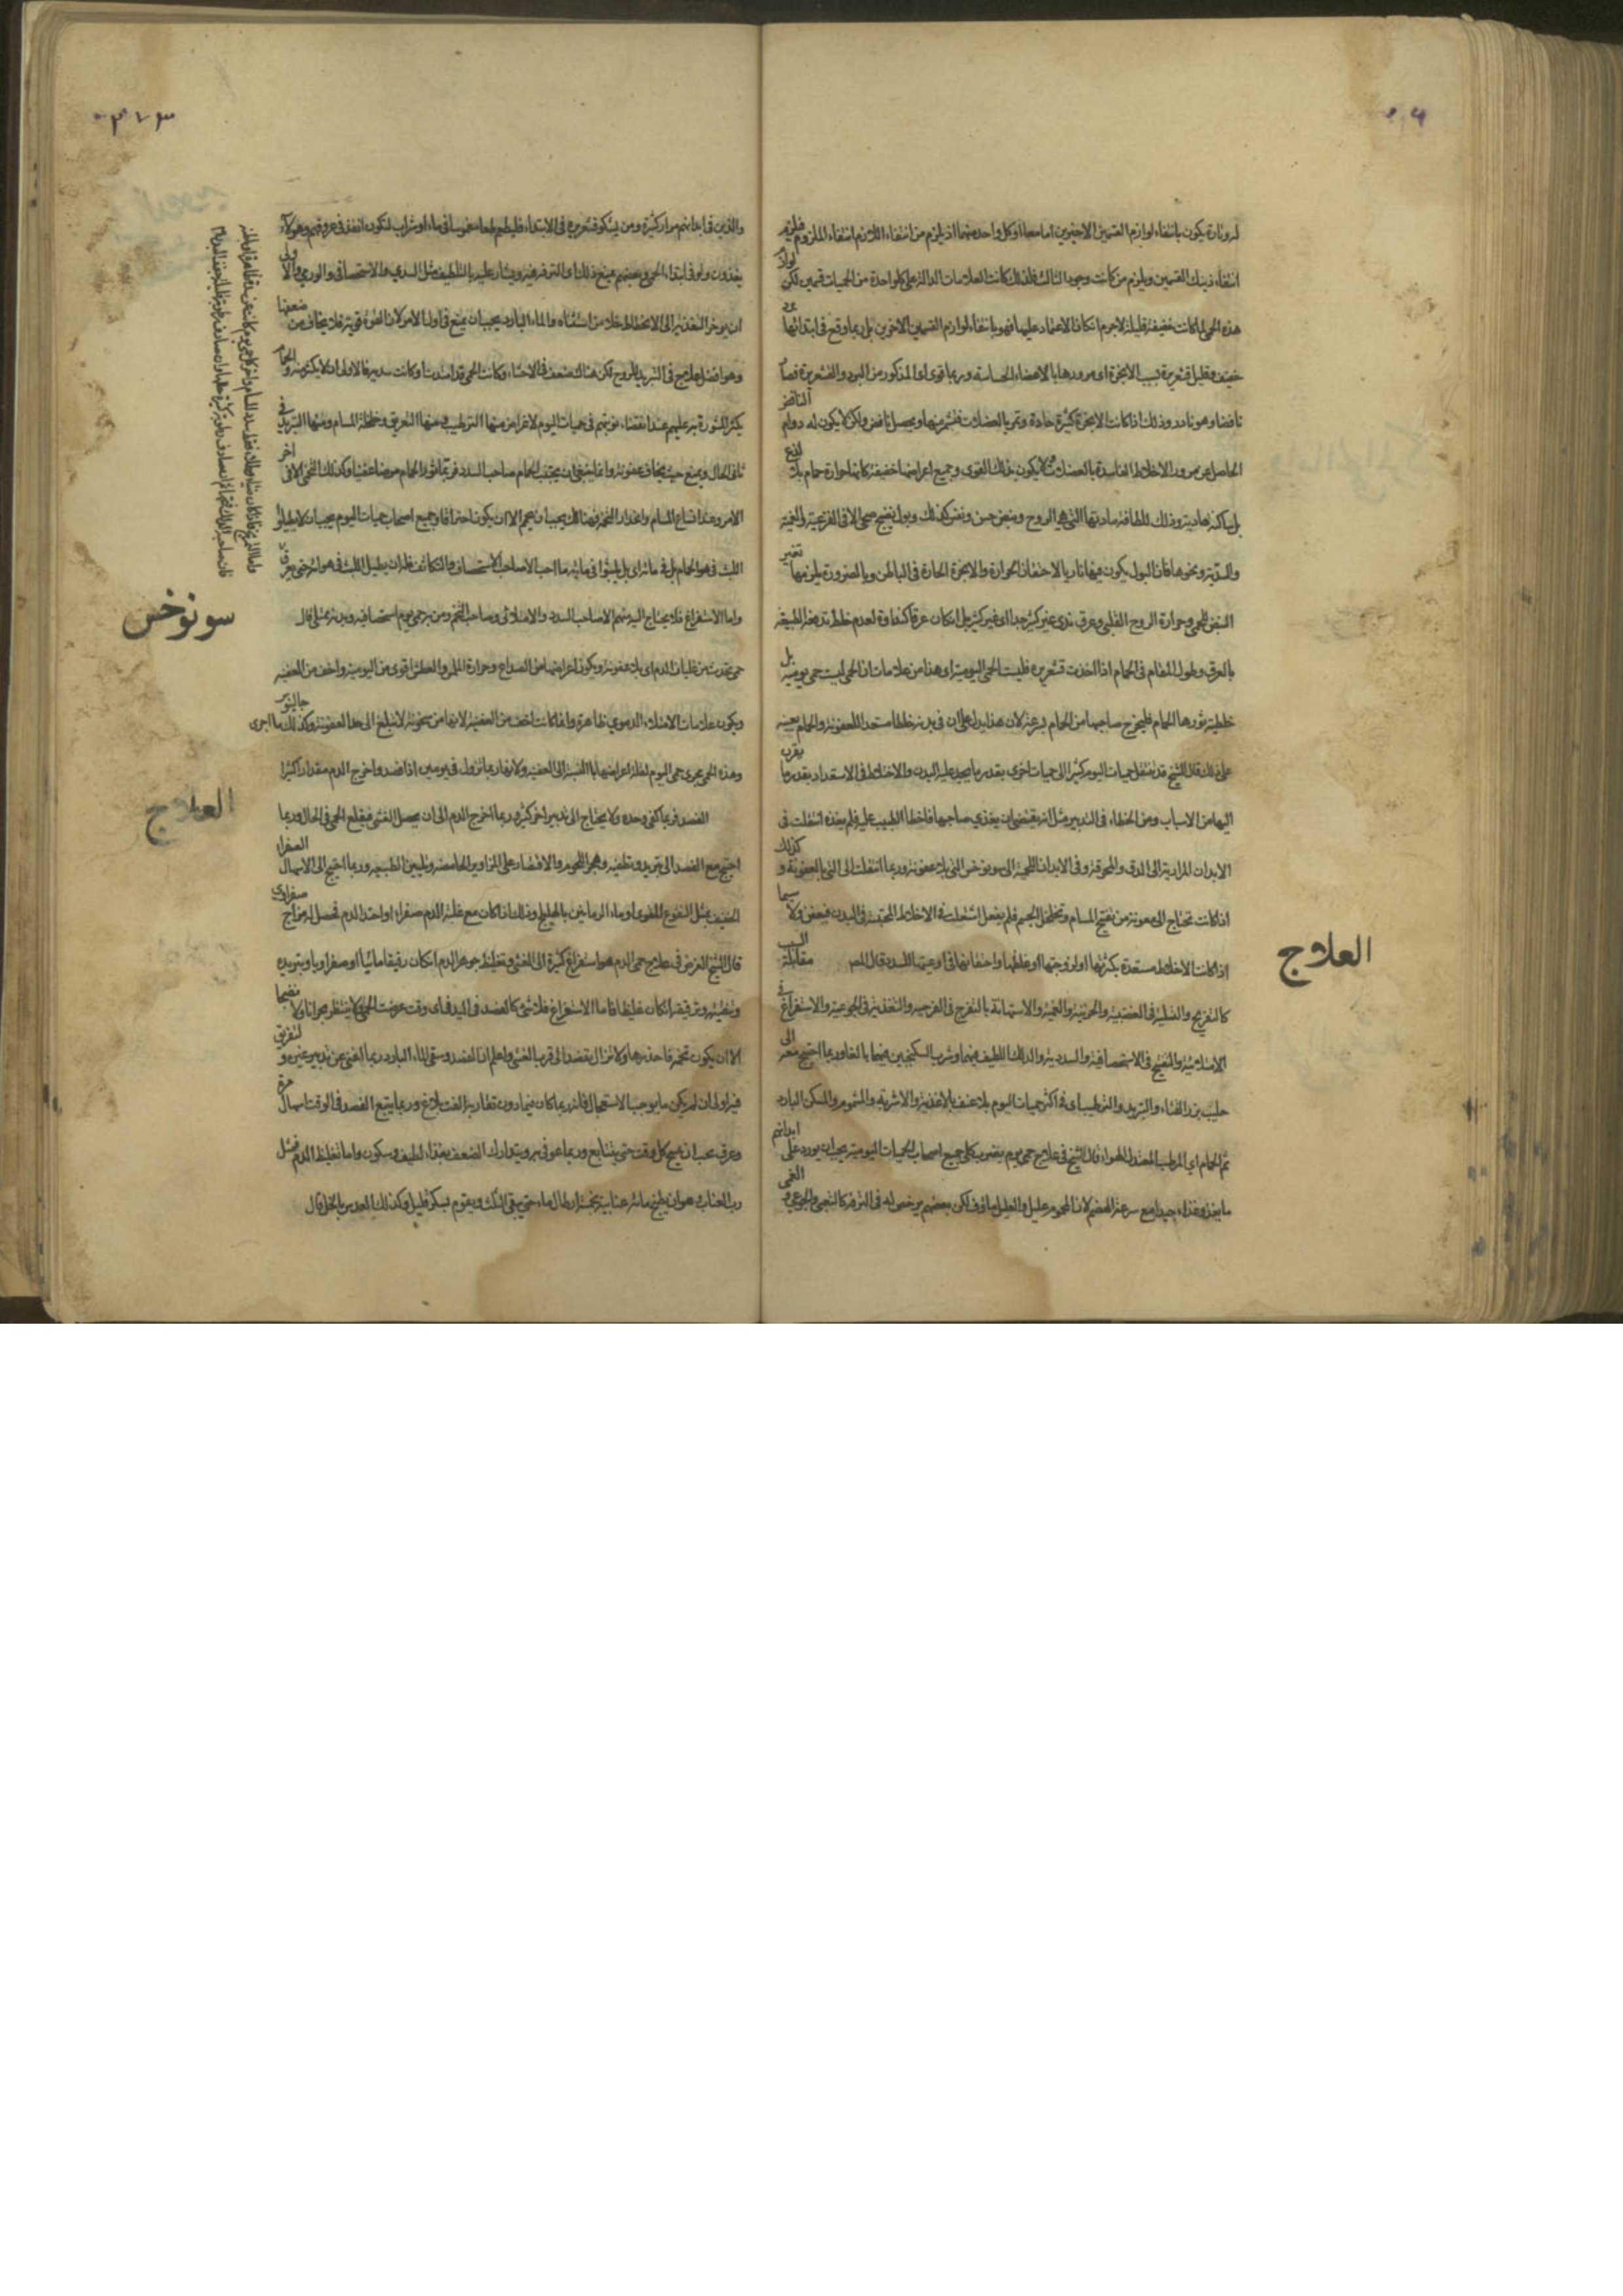 له وتارة يكون بانتفاء لوازم القسمين الاخيرين اما معا او كل واحد منهما اذ يلزم من انتفاء اللازم انتفاء الملزوم فيلزم
انتفاء ذينك القسمين ويلزم من كانت وجود الثالث فلذلك كانت العلامات الدالة على كل واحدة من الحميات قسمين لكن
هذه الحمى لما كانت خفيفة قليلة لاجرم انكان الاعتماد عليها فهو بانتفاء لوازم القسمين الاخرين بل ربما وقع في ابتدائها
خفيف وقليل قشعريرة بسبب الابخرة اى مرورها بالاعضاء الحساسة وربما قوى اى المذكور من البرد والقشعريرة فصار
نافضا وهو نادر وذلك اذا كانت الابخرة كثيرة حادة وتمر بالعضلات ويحصل نافض ولكن لا يكون له دوام
الحاصل عن مرور الاخلاط الفاسدة بالعضلات لا يكون بذلك القوى وجميع اعراضها خفيفة كانها حرارة حمام بلا لذع
بل ساكنة هادية وذلك للطافة مادتها التي هي الروح ونبض حسن ونفس كذلك وبول نضيج صحى الا في الفزعية والغمية
والسددية ونحوها فان البول يكون فيها ناريا لاحتقان الحرارة والابخرة الحارة في الباطن وبالضرورة يلزمها تغير
النبض للحمى وحرارة الروح القلبى وعرق ندى غير كثير جدا اى غير كثير بل انكان عرقا كنداوة لعدم خلط تدفعه الطبيعة
بالعرق وطول المقام في الحمام اذا اخذت قشعريرة فليست الحمى اليومية اى هذا من علامات ان الحمى ليست حمى يومية بل
خلطية يثورها الحمام فليخرج صاحبها من الحمام بسرعة لان هذا يدل على ان في بدنه خلطا مستعدا للعفونة والحمام يعينه
على ذلك قال الشيخ قد تنتقل حميات اليوم كثيرا الى حميات اخرى بقدر ما يجد عليه البدن والاخلاط في الاستعداد بقدر ما يقرن
اليها من الاسباب ومن الخطاء في التدبير مثل انه يقتضى ان يغذي صاحبها فاخطأ الطبيب عليه فلم يغذه انتقلت فى
الابدان المرارية الى الدق والمحرقة وفي الابدان اللحمية الى سونوخس التي بلا عفونة وربما انتقلت الى التي بالعفونة و كذلك
اذا كانت تحتاج الى معونة من تفتيح المسام وتخلخل الجسم فلم يفعل اشتعلت في الاخلاط المحتقنة في البدن فيعفن ولا سيما
اذا كانت الاخلاط مستعدة بكثرتها او لزوجتها او غلظها واحتقانها في اوعيتها للسدة قال المص مقابلة السبب
كالتفريح والتسلية في الغضبية والحزنية والغمية والاستهانة بالتفرج في الفرحية والتغذية في الجوعية والاستفراغ في
الامتلائية والتفتيح في الاستحصافية والسددية والدلك اللطيف فيهما وشرب السكنجبين فيهما بالغا وربما احتيج معه الى
حليب بزر القثاء والتبريد والترطيب اى في اكثر حميات اليوم بلا عنف بالاغذية والاشربة والشموم والمسكن البارد
ثم الحمام اي المرطب المعتدل الهواء قال الشيخ في علاج حمى يوم بضرب كلى جميع اصحاب الحميات اليومية يجب ان يورد على ابدانهم
ما يغذو غذاء جيدا مع سرعة الهضم لان المحموم عليل والعليل ماؤف لكن بعضهم يرخص له في الترفه كالتعبى والجوعي و الغمى
العلاج
والذين في ابدانهم مرار كثيرة ومن يشكو قشعريرة في الابتداء فليطعم طعاما مغموسا في ماء او شراب لتكون انفذ في عروقهم وهؤلاء
يغذون ولو في ابتداء الحمى وبعضهم يمنع ذلك اى الترفه فيه ويشار عليه بالتلطيف مثل السددي والاستحصافى والورمي والاولى
ان يوخر التغذية الى الانحطاط خلا من استثناه والماء البارد يجب ان يمنع في اول الامر لان القوة قوية فلا يخاف من ضعفها
وهو افضل علاج في التبريد للروح لكن هناك ضعف في الاحشاء وكانت الحمى قد امتدت او كانت سددية فالاولى ان لا يكثر منه والحمام
يكثر المشورة به عليهم عند انقضاء نوبتهم في حميات اليوم لاغراض منها الترطيب ومنها التعريق وخلخلة المسام ومنها التبريد في
ثاني الحال ويمنع حيث يخاف عفونة وانما ينبغي ان يجتنب الحمام صاحب السدد فربما اثور الحمام مرضا عفنيا وكذلك التخمى الا فى اخر
الامر وعند اتساع المسام وانحدار التخمة فهنالك يجب ان يحم الا ان يكون احتراقا وجميع اصحاب حميات اليوم يجب ان لا يطيلوا
اللبث في هواء الحمام بل في مائه اى بل يلبثوا في مائه ما احب الا صاحب الاستحصاف والتكاثف فله ان يطيل اللبث في هوائه حتى يعرق
واما الاستفراغ فلا يحتاج اليه منهم الا صاحب السدد والامتلائي وصاحب التخم ومن به حمى يوم استحصافية وبدنه ممتلئ قال
حمى تحدث من غليان الدم اى بلا عفونة ويكون اعراضها من الصداع وحرارة الملمس والعطش اقوى من اليومية واخف من العفنية
ويكون علامات الامتلاء الدموي ظاهرة وانما كانت اخف من العفنية لانها من سخونة لا تبلغ الى حد العفونة وكذلك ما اجرى جالينوس
وهذه الحمى مجرى حمى اليوم لقلة اعراضها بالنسبة الى العفنية ولانها ربما تزول في يومين اذا فصد واخرج الدم مقدارا كثيرا
الفصد فربما كفى وحده ولا يحتاج الى تدبير اخر كثير وربما اخرج الدم الى ان يحصل الغشى فيقلع الحمى في الحال وربما
احتيج مع الفصد الى تبريد وتطفية وهجر اللحوم والاقتصار على المزاوير الحامضة وتليين الطبيعة وربما احتيج الى الاسهال الصفراء
الخفيف بمثل النقوع المقوى او ماء الرمانين بالهليلج وذلك اذا كان مع غلبة الدم صفراء او احتد الدم فحصل له مزاج صفراوى
قال الشيخ الغرض في علاج حمى الدم هو استفراغ كثيرة الى الغشى وتغليظ جوهر الدم انكان رقيقا مائيا او صفراويا وتبريده
وتنقيته وترقيقه انكان غليظا فاما الاستفراغ فلا شئ كالفصد في اليد فى اى وقت عرضت الحمى ولا ينتظر بحرانا ولا نضجا
الا ان يكون تخمة فاحذرها ولا تزال يفصد الى قرب الغشى واعلم ان الفصد وسقى الماء البارد ربما اغنى عن تدبير غيره و لتفريق
فيه اولى ان لم يكن ما يوجب الاستعجال فانه ربما كان فيما دون تفاريق الفت بلاغ وربما يتبع الفصد في الوقت اسهال مرة
وعرق يجب ان يمسح كل وقت حتى يتتابع وربما عوفي به ويتدارك الضعف بغذاء لطيف وسكون واما تغليظ الدم فمثل
رب العناب وهو ان يطبخ مائة عنابة بخمسة ارطال ماء حتى يبقى الثلث ويقوم بسكر قليل وكذلك العدس بالخل قال
سونوخس
العلاج